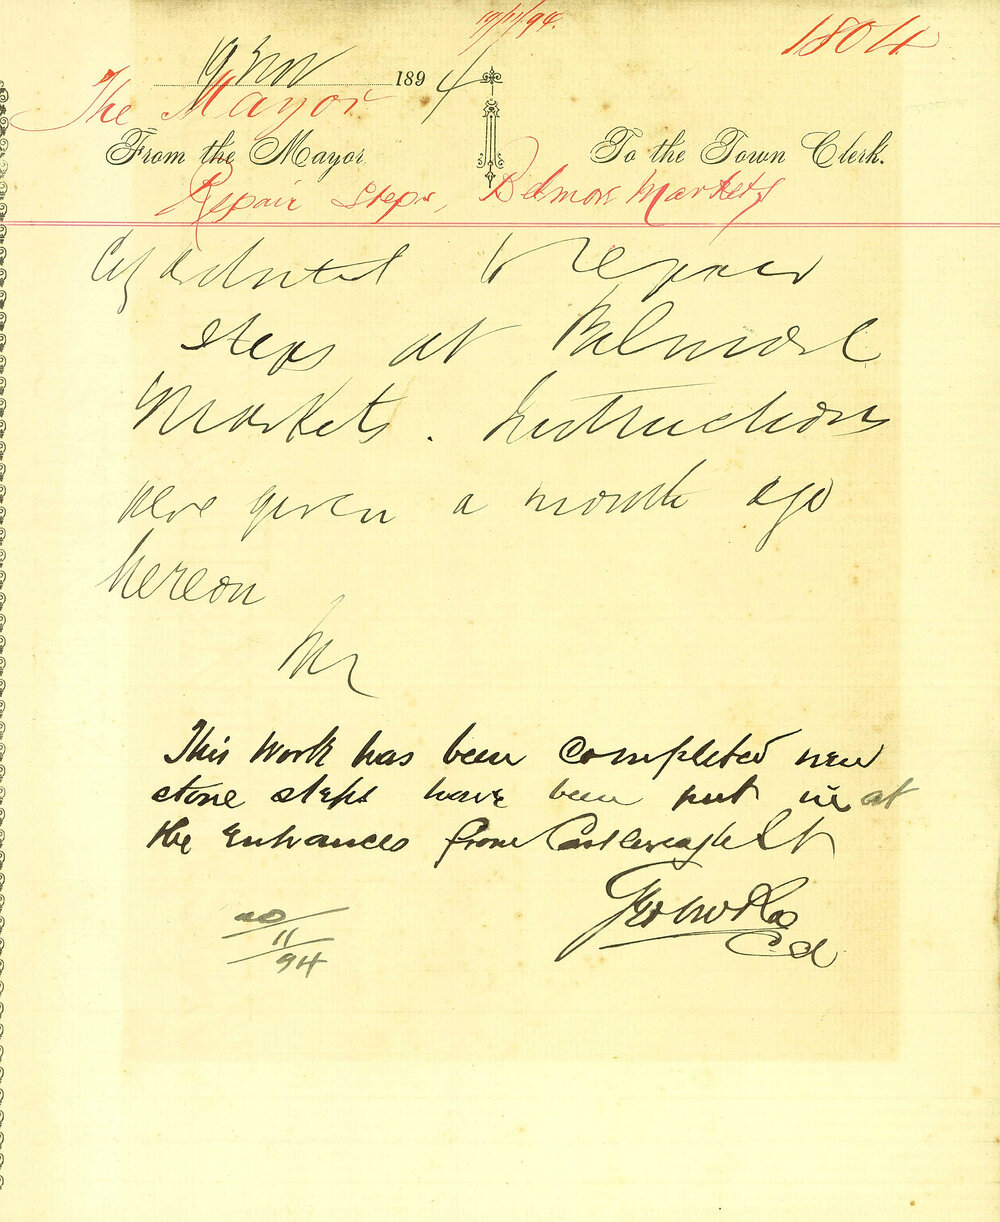 19/11/94.
1804
19 Nov 1894
The Mayor
From the Mayor To the Town Clerk.
Repair Steps, Belmore Markets
City Architect to repair
steps at Belmore
Markets. Instructions
were given a month ago
hereon
This work has been completed new
stone steps have been put in at
the Entrances from Castlereagh St
20/11/94